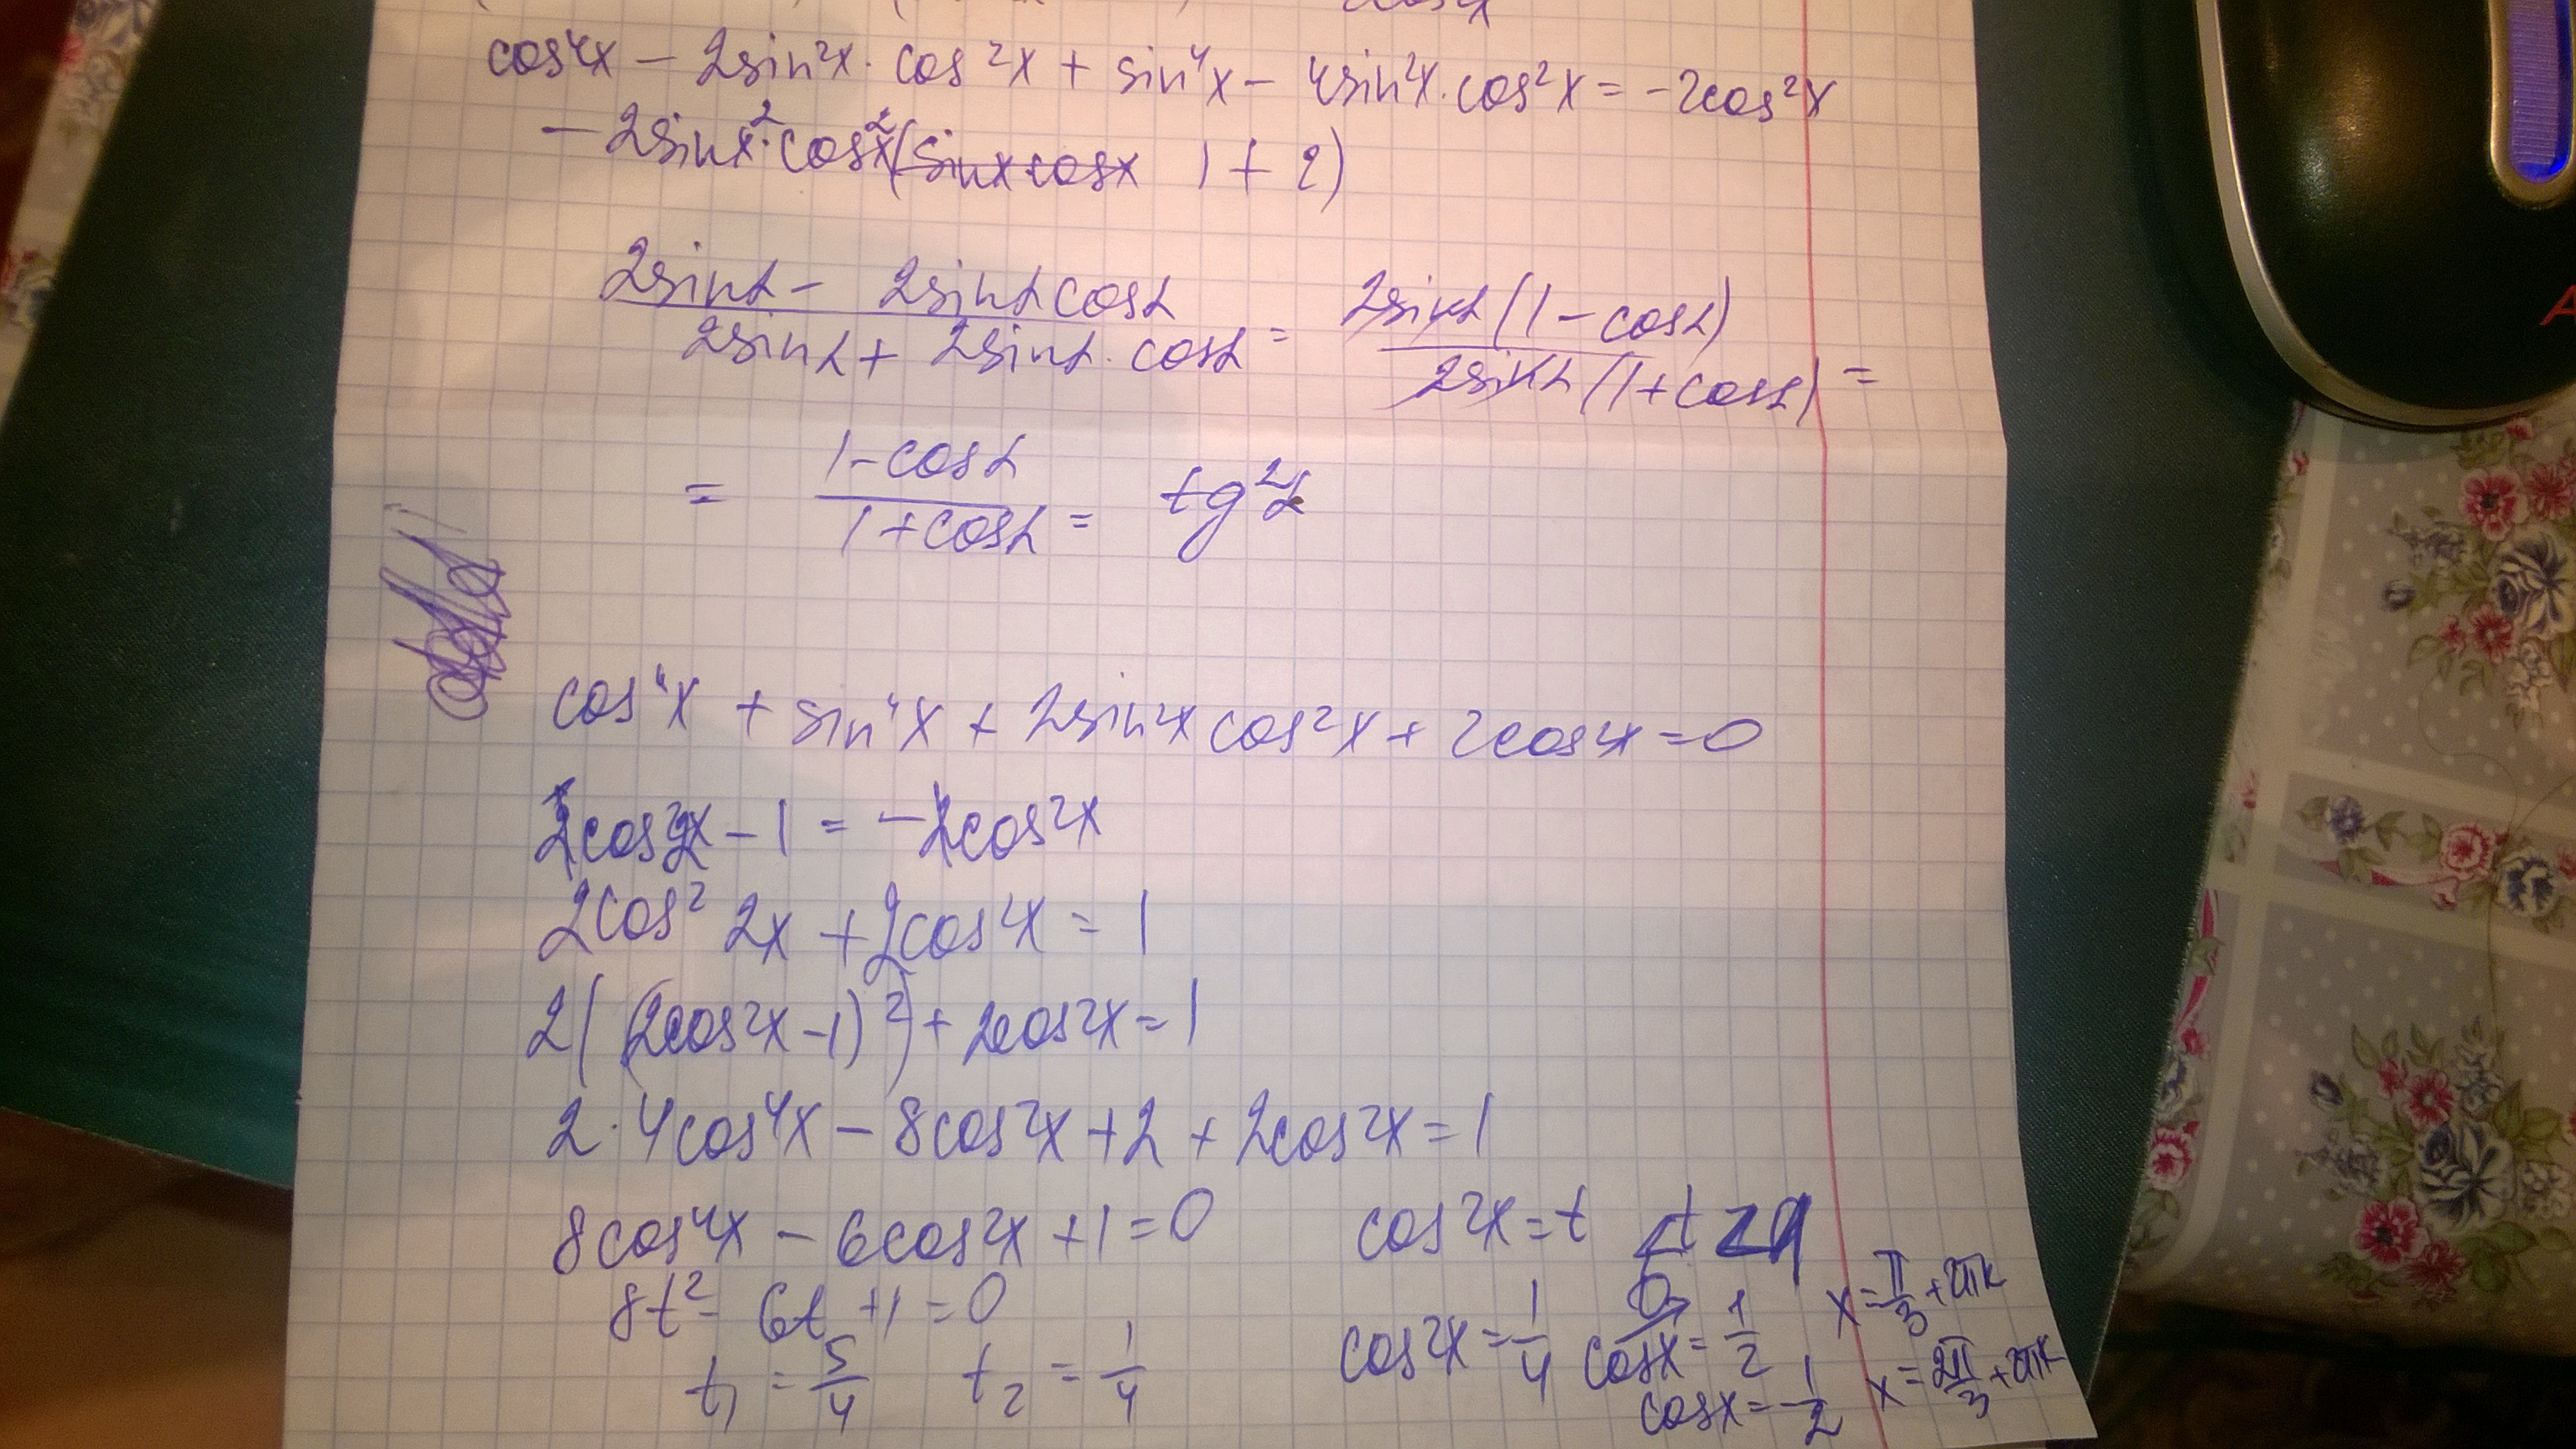 cos⁴x − 2sin²x · cos²x + sin⁴x − 4sin²x · cos²x = −2cos²x
− 2sin²x · cos²x (sinx cosx 1 + 2)
(2sinα − 2sinα cosα)/(2sinα + 2sinα · cosα) = (2sinα (1 − cosα))/(2sinα (1 + cosα)) =
= (1 − cosα)/(1 + cosα) = tg²α
cos⁴x + sin⁴x + 2sin²x cos²x + 2cos²x = 0
2cos²2x − 1 = −2cos²x
2cos² 2x + 2cos²x = 1
2((2cos²x − 1)²) + 2cos²x = 1
2 · 4cos⁴x − 8cos²x + 2 + 2cos²x = 1
8cos⁴x − 6cos²x + 1 = 0 cos²x = t
8t² − 6t + 1 = 0
t₁ = 5/4 t₂ = 1/4 cos²x = 1/4 cosx = 1/2 x = π/3 + 2πk
cosx = −1/2 x = 2π/3 + 2πk